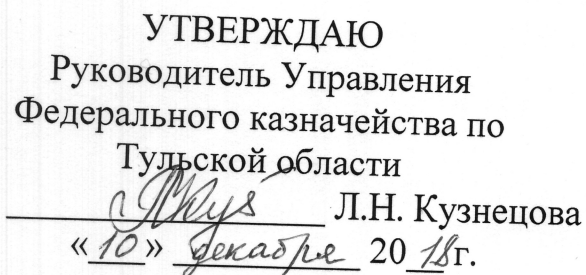 УТВЕРЖДАЮ
Руководитель Управления
Федерального казначейства по
Тульской области
Л.Н. Кузнецова
«10» декабря 2018г.